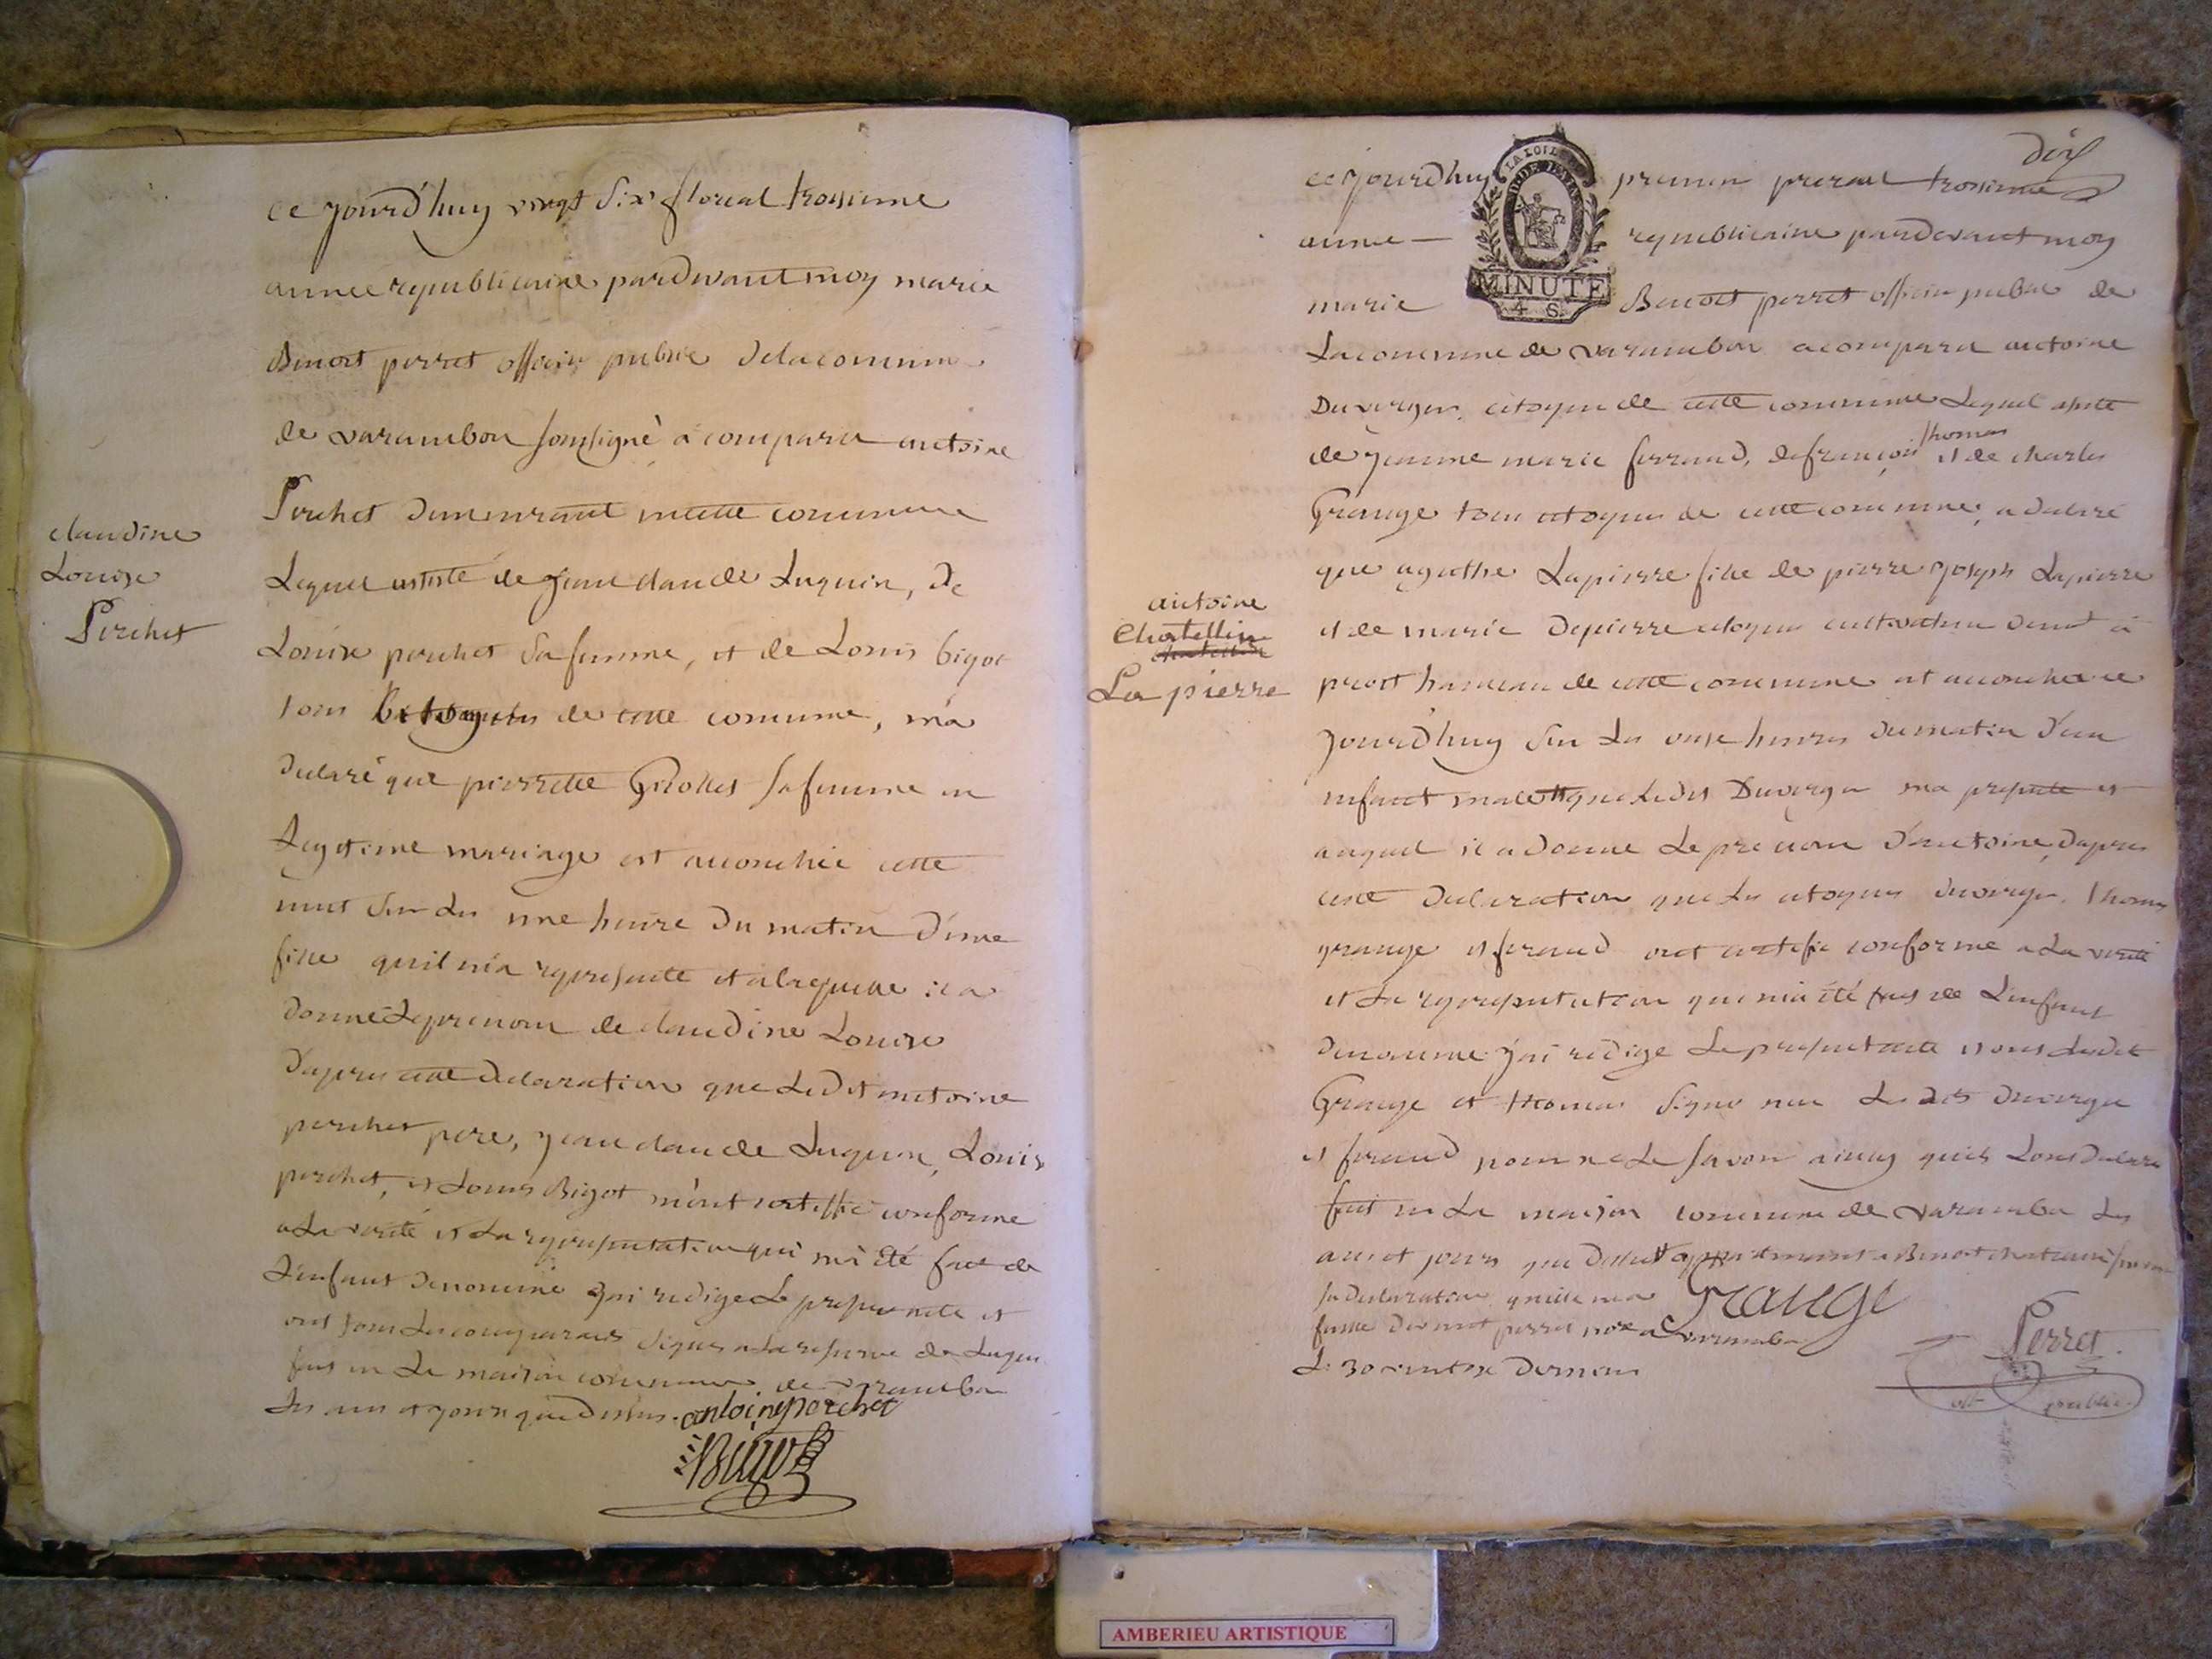 ce jourd'huy vingt six floreal troisieme
année republicaine pardevant moy marie
Benoit perret officier public de la commune
de varambon soussigné a comparu antoine
Perchet demeurant en cette commune
Lequel assisté de jean claude Luquin, de
Louise perchet sa femme, et de Louis bigot
tous citoyens de cette comune, m'a
declaré que pierrette sa femme en
Legitime mariage est accouchée cette
nuit sur les une heure du matin d'une
fille qu'il m'a representé et a laquelle il a
donné le prenom de claudine Louise
d'apres cette declaration que Ledit antoine
perchet pere, jean claude Luquin, Louise
perchet, et Louis Bigot m'ont certiffié conforme
a La verité et La representation qui m'a été faite de
L'enfant denommé J'ai redigé Le present acte et
ont tous Les comparants signés a la reserve de Luquin
fait en La maison commune de varambon
Les ans et jours que dessus. antoine perchet
Bigot
claudine
Louise
Perchet
dix
ce jourd'huy premier prereal troisieme
année — republicaine pardevant moy
marie Benoit perret officier public de
La commune de varambon a comparu antoine
Duverger citoyen de cette commune Lequel assisté
de jeanne marie ferrand, de françois thomas et de charles
Grange tous citoyens de cette commune, a declaré
que agathe Lapierre fille de pierre joseph Lapierre
et de marie Depierre citoyens cultivateurs demt à
priost hameau de cette commune est accouchée ce
jourd'huy sur Les onze heures du matin d'un
enfant male que Ledit Duverger m'a presenté et
auquel il a donné Le prenom d'antoine, d'apres
cette declaration que Les citoyens duverger, thomas
grange et ferrand ont certifié conforme a La verité
et La representation qui m'a été fait de L'enfant
denommé j'ai redigé Le present acte et ont Lesdit
Grange et thomas signé non Les dits duverger
et ferrand pour ne Le savoir ainsy qu'ils L'ont declaré
fait en La maison commune de varambon Les
an et jours que dessus appartenant a Benoit
sa declaration qu'elle m'a Grange
faitte devant perret a varambon
Le 30 ventose dernier
Perret
off public
antoine
Chatellin
La pierre
LA LOI LE
MINUTE
4 S.
AMBERIEU ARTISTIQUE